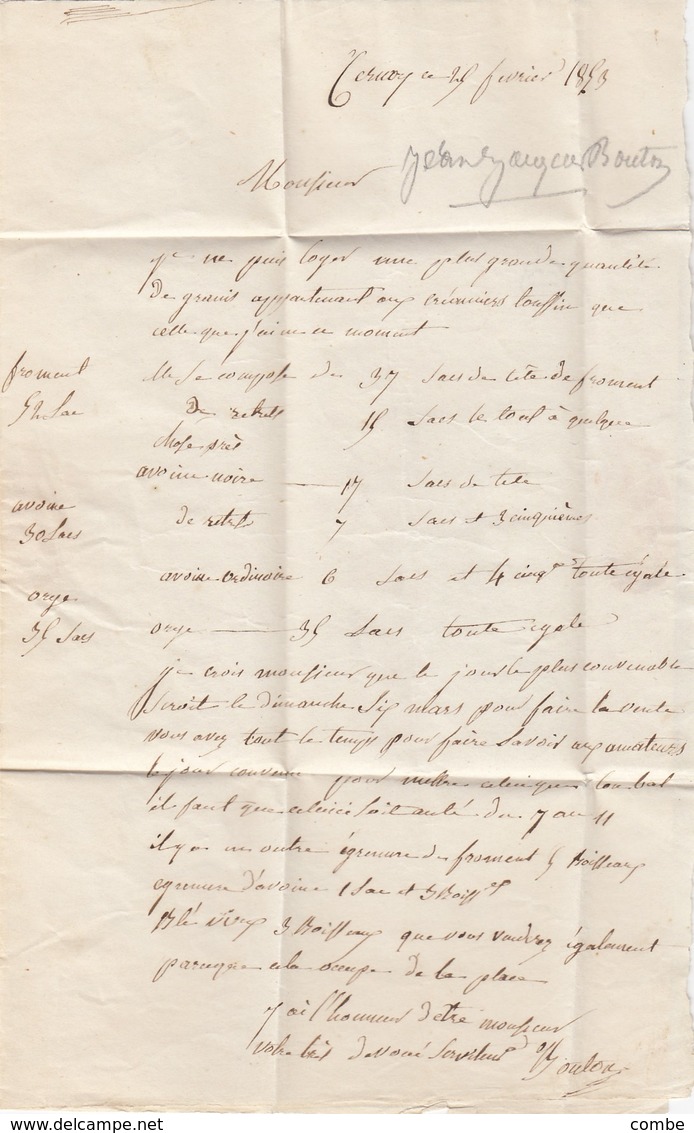 Ternay ce 25 fevrier 1853
Jean Jacques Bouton
Monsieur
je ne puis loger une plus grande quantité
De grains appartenant aux créanciers que
celle que j'aime ce moment
froment
52 Sac
elle Se compose de 37 Sacs de tete de froment
De retret 15 Sacs le tout à quelque
chose près
avoine noire 17 Sacs de tete
avoine
30 Sacs
de retret 7 Sacs et 3 cinquièmes
avoine ordinaire 6 Sacs et 4 cinq toute égale
orge
35 Sacs
orge 35 Sacs toute egale
je crois monsieur que le jour le plus convenable
Seroit le dimanche Six mars pour faire la vente
vous avez tout le temps pour faire Savoir aux amateurs
le jour convenu pour mettre
il faut que celuici Soit du 7 au 11
il y a en outre égrenure de froment 5 Boisseaux
egrenure d'avoine 1 Sac et 3 Boiss
Blé vieux 3 Boisseaux que vous vendrez également
parceque cela occupe de la place
J'ai l'honneur d'etre monsieur
votre très devoué Serviteur
Bouton
combe